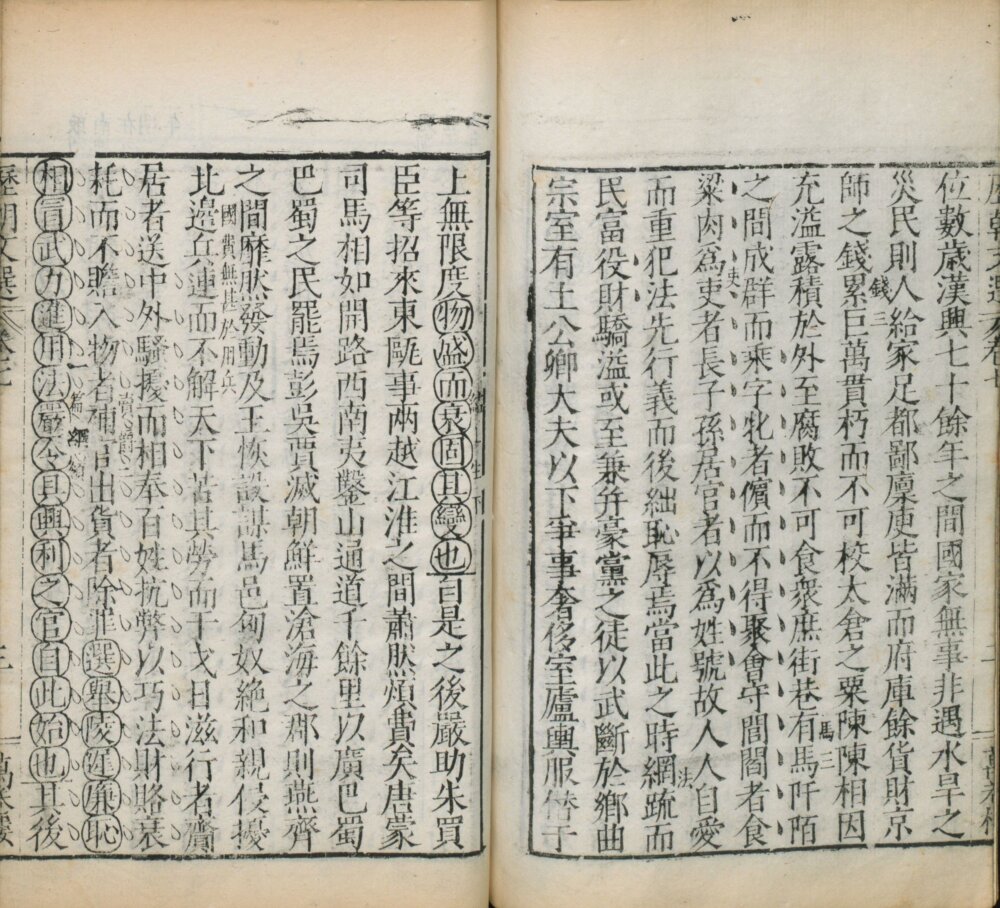 位數歲漢興七十餘年之間國家無事非遇水旱之
災民則人給家足都鄙廩庾皆滿而府庫餘貨財京
師之錢累巨萬貫朽而不可校太倉之粟陳陳相因
錢三
充溢露積於外至腐敗不可食衆庶街巷有馬阡陌
馬三
之間成群而乘字牝者儐而不得聚會守閭閻者食
吏
粱肉爲吏者長子孫居官者以爲姓號故人人自愛
而重犯法先行義而後絀恥辱焉當此之時網疏而
法
民富役財驕溢或至兼幷豪黨之徒以武斷於鄉曲
宗室有土公卿大夫以下爭事奢侈室廬輿服僭于
上無限度物盛而衰固其變也自是之後嚴助朱買
臣等招來東甌事兩越江淮之間蕭然煩費矣唐蒙
司馬相如開路西南夷鑿山通道千餘里以廣巴蜀
巴蜀之民罷焉彭吳賈滅朝鮮置滄海之郡則燕齊
之間靡然發動及王恢設謀馬邑匈奴絶和親侵擾
國費無甚於用兵
北邊兵連而不解天下苦其勞而干戈日滋行者齎
居者送中外騷擾而相奉百姓抗弊以巧法財賂衰
賣爵二
耗而不贍入物者補官出貨者除罪選舉陵遲廉恥
一篇綱領
相冒武力進用法嚴令具興利之官自此始也其後
歷朝文選 卷七